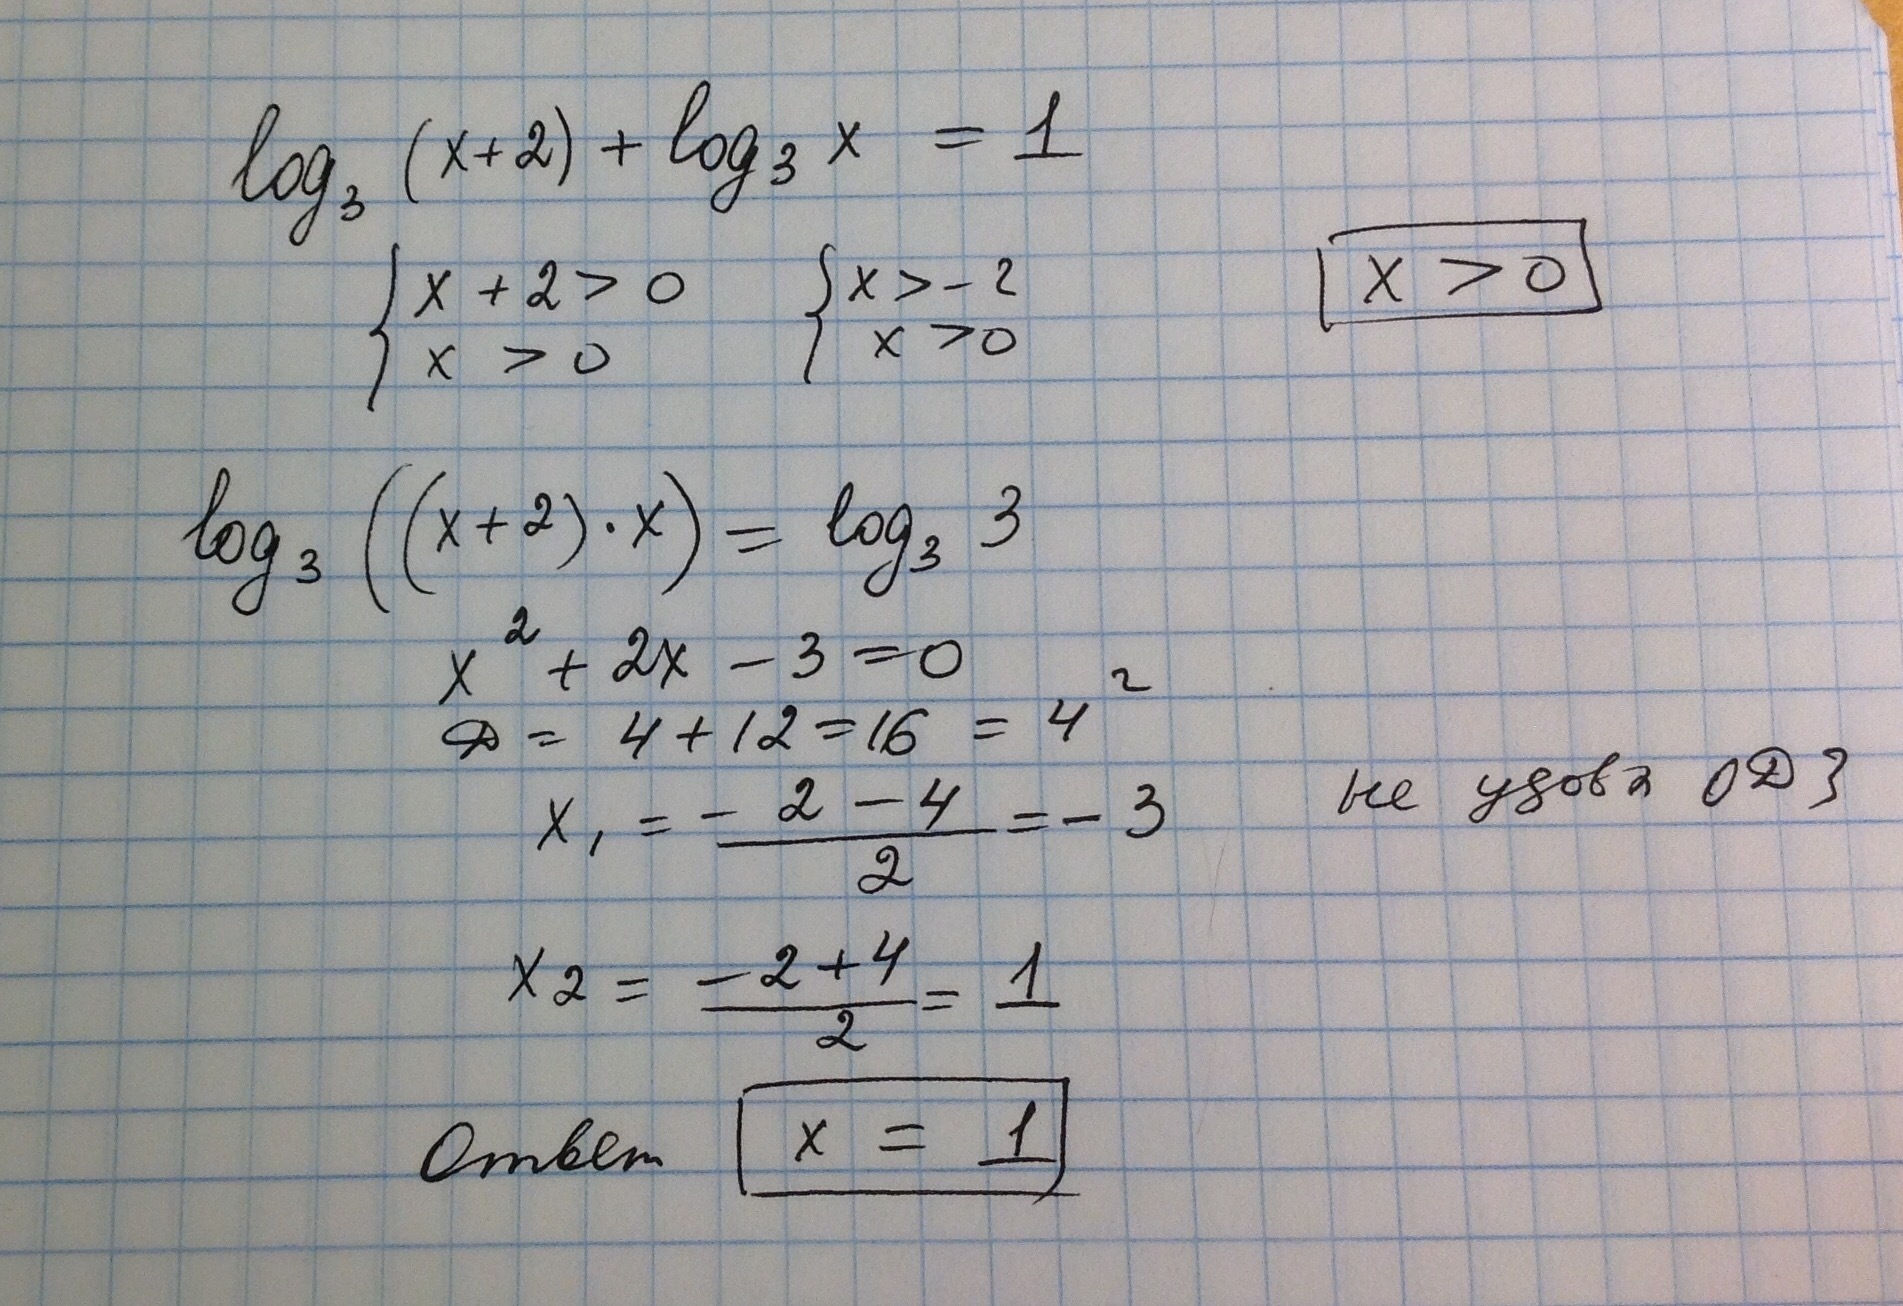 log₃ (x+2) + log₃ x = 1
{ x + 2 > 0 { x > -2 x > 0
x > 0 x > 0
log₃ ((x+2)·x) = log₃ 3
x² + 2x - 3 = 0
D = 4 + 12 = 16 = 4²
x₁ = (-2 - 4)/2 = -3 не удовл ОДЗ
x₂ = (-2+4)/2 = 1
Ответ x = 1